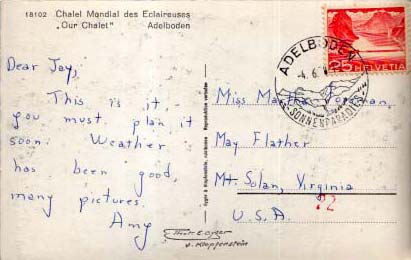 18102 Chalet Mondial des Eclaireuses
"Our Chalet" Adelboden
Dear Jay,
This is it
you must plan it
soon. Weather
has been good,
many pictures.
Amy
ADELBODEN
-4.6.
SONNENPARADIES
25 HELVETIA
Miss
May Flather
Mt. Solan, Virginia
U.S.A.
22
J. Klopfenstein